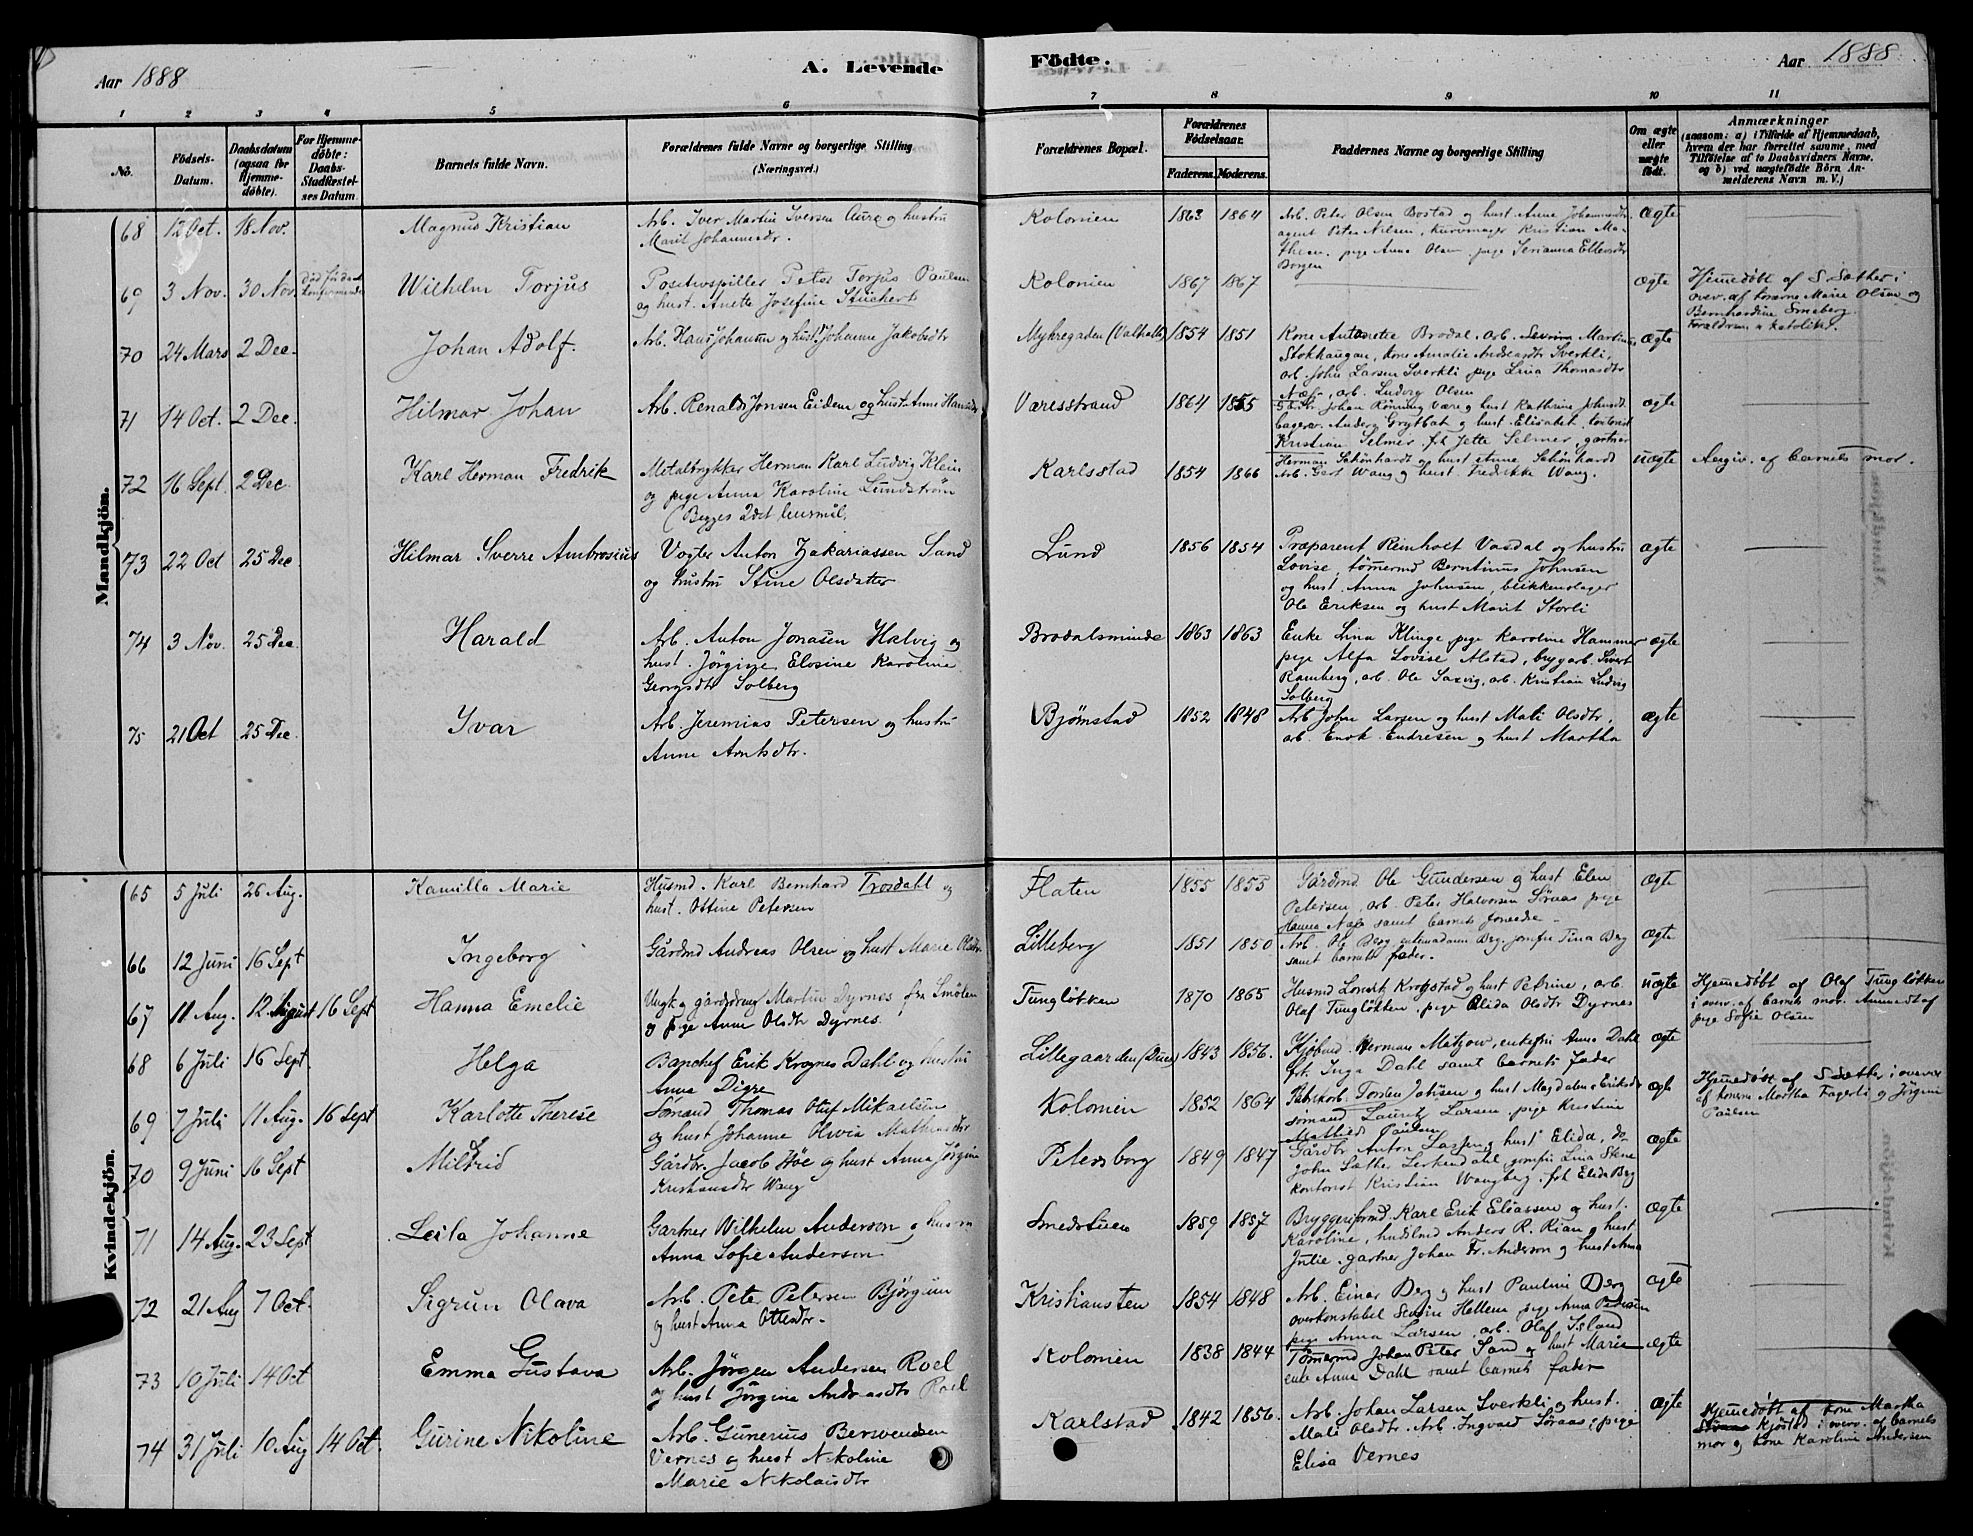 Aar 1888
A. Levende
Födte.
Aar 1888
1 2 3 4 5 6 7 8 9 10 11
No.
Födsels-
Datum.
Daabsdatum
(ogsaa for
Hjemme-
döbte).
For Hjemme-
döbte:
Daabs-
Stadfæstel-
ses Datum.
Barnets fulde Navn.
Forældrenes fulde Navne og borgerlige Stilling
(Næringsvei.)
Forældrenes Bopæl.
Forældrenes
Födselsaar.
Faderens. Moderens.
Faddernes Navne og borgerlige Stilling
Om ægte
eller
uægte
födt.
Anmærkninger
(saasom: a) i Tilfælde af Hjemmedaab,
hvem der har forrettet samme, med
Tilföielse af to Daabsvidners Navne.
og b) ved uægtefödte Börn An-
melderens Navn m. V.)
Mandkjön.
68 12 Oct. 18 Nov. Magnus Kristian
Arb. Iver Martin Iversen Aure og hustru
Marit Johannesdr.
Kolonien 1863 1864
Arb. Peter Olsen Bostad og hust Anne Johannesdr.
agent Peter Nilsen, kurvmager Kristian Ma-
thesen, pige Anna Olsen, pige Serianna Ellersdr
Borgen
Ægte
69 3 Nov. 30 Nov. Død før dåbs
konfirmeredes
Wilhelm Torjus
Positivspiller Peter Torjus Paulsen
og hust. Anette Josefine Stüchert
Kolonien 1867 1867
ægte
Hjemedöbt af S Sæther i
overv. af konerne Marie Olsen og
Bernhardine Smeberg.
Forældrene er katoliker.
70 24 Mars 2 Dec. Johan Adolf.
Arb. Hans Johansen og hust. Johanna Jakobsdtr
Myhregaden (Valhalla) 1854 1851
Kone Antonette Brodal, arb. Martinus
Stokhaugan, kone Amalie Andreasdtr Sverkli,
arb. John Larsen Sverkli pige Lina Thomasdtr
Næss, arb. Ludvig Olsen
ægte
71 14 Oct. 2 Dec. Hilmar Johan
Arb. Renald Jonsen Eidem og hust Anne Hansdr
Væresstrand 1864 1855
Gårdbr. Johan Rönning Være og hust Kathrine Johnsdt.
bager Anders Grytbak og hust Elisabet, kontorist
Kristian Selmer, frk Jette Selmer, gartner
ægte
72 16 Sept. 2 Dec. Karl Herman Fredrik
Metaltrykker Herman Karl Ludvig Klein
og pige Anna Karoline Lundström
(Begges 2det leiermål.
Karlsstad 1854 1866
Herman Schönhardt og hust Anne Schönhardt
Arb. Wang og hust Fredrikke Wang.
uægte
Angiv. af barnets mor.
73 22 Oct 25 Dec Hilmar Sverre Ambrosius
Vogter Anton Zakariassen Sand
og hustru Stine Olsdatter
Lund 1856 1854
Præparent Reinholt Vasdal og hustru
Lovise, tömermd Berntinus Johnsen
og hust. Anna Johnsen, blikkenslager
Ole Eriksen og hust Marit Storli
ægte
74 3 Nov. 25 Dec. Harald
Arb. Anton Jonasen Halvig og
hust. Jörgine Elosine Karoline
Georgsdtr Solberg
Brodalsminde 1863 1863
Enke Lina Klinge pige Karoline Hammer
pige Alfa Lovise Alstad, brygarb. Sivert
Ramberg, arb. Ole Saxvig, arb. Kristian Ludvig
Solberg
ægte
75 21 Oct 25 Dec. Yvar
Arb. Jeremias Petersen og hustru
Anne Arntsdtr.
Bjørnstad 1852 1848
Arb John Larsen og hust Mali Olsdtr,
arb. Enok Endresen og hust Martha
ægte
Kvindekjön.
65 5 Juli 26 Aug. Kamilla Marie
Husmd. Karl Bernhard Trosdahl og
hust. Ottine Petersen
Flaten 1855 1855
Gårdmd Ole Gundersen og hust Elen
Petersen, arb. Peter Halvorsen Söraas pige
Hanna Næss samt barnets forældre.
Ægte
66 12 Juni 16 Sept Ingeborg
Gårdmd Andreas Olsen og hust Marie Olsdtr
Lilleberg 1851 1850
Arb. Ole Berg, enkemadam Berg, jomfru Tina Berg
samt barnets fader.
ægte
67 11 Aug. 12 August 16 Sept Hanna Emelie
Ungk og gårdsdreng Martin Dyrnes fra Smölen
og pige Anne Olsdtr Dyrnes.
Tunglökken 1870 1865
Husmd Lorentz Krogstad og hust Petrine, arb.
Olaf Tunglökken, pige Elida Olsdtr Dyrnes
uægte
Hjemedöbt af Olaf Tunglökken
i overv. af barnets mor. Anmeldt af
pige Sofie Olsen
68 6 Juli 16 Sept. Helga
Banchef Erik Krognes Dahl og hustru
Anna Digre
Lillegaarden (Duen) 1843 1856.
Kjöbmd. Herman Matzow, enkefru Anna Dahl
frk. Inga Dahl samt barnets fader
ægte
69 7 Juli 11 Aug. 16 Sept Karlotte Therese
Sömand Thomas Oluf Mikaelsen
og hust Johanne Olivia Mathiasdtr
Kolonien 1852 1864
Fabrikarb. Torsten Johsen og hust Magdalena Eriksdr
sömand Lauritz Larsen, pige Kristine
Mathiede Paulsen
ægte
Hjemedöbt af S Sæther i overv
af konerne Martha Fagerli og Jörgine
Paulsen
70 9 Juni 16 Sept Mildrid
Gårdbr. Jacob Höe og hust Anna Jörgine
Kristiansdtr Wang
Petersborg 1849 1847
Gårdbr Anton Lassen og hust Elida, do
John Sæther Lerkendahl, jomfru Lina Skene
kontorist Kristian Wangberg, frk Elida Berg
ægte
71 14 Aug. 23 Sept Leila Johanne
Gartner Wilhelm Anderson og hustru
Anna Sofie Anderson
Smedstuen 1859 1857
Bryggeriformd. Karl Erik Eliassen og hust.
Karoline, Anders R. Rian og hust
Julie, gartner Johan Fr. Anderson og hust Anna
ægte
72 21 Aug 7 Oct. Sigrun Olava
Arb. Peter Petersen Björgum
og hust Anna Ottesdr.
Kristiansten 1854 1848
Arb. Einar Berg og hust Pauline Berg
overkonstabel Sevrin Hellem pige Anna Pedersen
pige Anna Larsen, arb. Olaf Island
ægte
73 10 Juli 14 Oct Emma Gustava
Arb. Jörgen Andersen Roel
og hust Jörgine Andreasdtr Roel
Kolonien 1838 1844
Tömermd Johan Peter Sand og hust Marie
enke Anna Dahl samt barnets fader
ægte
74 31 Juli 10 Aug 14 Oct. Gurine Nikoline
Arb. Gunerius Berwendsen
Vernes og hust Nikoline
Marie Nikolaisdtr
Karlstad 1842 1856.
Arb. Johan Larsen Sverkli og hust.
Mali Olsdtr. Arb. Ingvald Söraas, pige
Elisa Vernes
Ægte
Hjemedöbt af kone Martha
Kjöstad i overv. af barnets
mor og kone Karoline Andersen